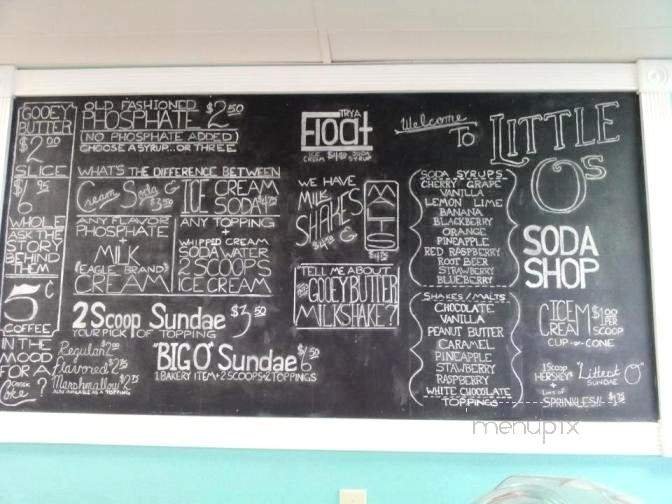 GOOEY
BUTTER
$2.00
SLICE
WHOLE
ASK THE
STORY
BEHIND
THEM
5¢
COFFEE
IN THE
MOOD
FOR A
Coke?
OLD FASHIONED
PHOSPHATE $2.50
(NO PHOSPHATE ADDED)
CHOOSE A SYRUP...OR THREE
WHAT'S THE DIFFERENCE BETWEEN
Cream Soda $3.50
&
ICE CREAM
SODA
ANY FLAVOR
PHOSPHATE
+
MILK
"EAGLE BRAND"
CREAM
ANY TOPPING
+
WHIPPED CREAM
SODA WATER
2 SCOOPS
ICE CREAM
2 Scoop Sundae $3.50
YOUR PICK OF TOPPING
Regular
Flavored
Marshmallow
ALSO AVAILABLE AS A TOPPING
"BIG O" Sundae $6.50
1 BAKERY ITEM+2 SCOOPS+2 TOPPINGS
TRY A
Float
ICE CREAM SODA SYRUP
WE HAVE
MILK
SHAKES
&
MALTS
TELL ME ABOUT
THE GOOEY BUTTER
MILKSHAKE?
Welcome
To
LITTLE
O's
SODA
SHOP
SODA SYRUPS
CHERRY GRAPE
VANILLA
LEMON LIME
BANANA
BLACKBERRY
ORANGE
PINEAPPLE
RED RASPBERRY
ROOT BEER
STRAWBERRY
BLUEBERRY
SHAKES/MALTS
CHOCOLATE
VANILLA
PEANUT BUTTER
CARAMEL
PINEAPPLE
STAWBERRY
RASPBERRY
WHITE CHOCOLATE
TOPPINGS
ICE CREAM $1.00 PER SCOOP
CUP-or-CONE
1 Scoop
HERSHEY'S
+
Lots of
SPRINKLES!!
"Littlest O"
SUNDAE
$1.75
menupix